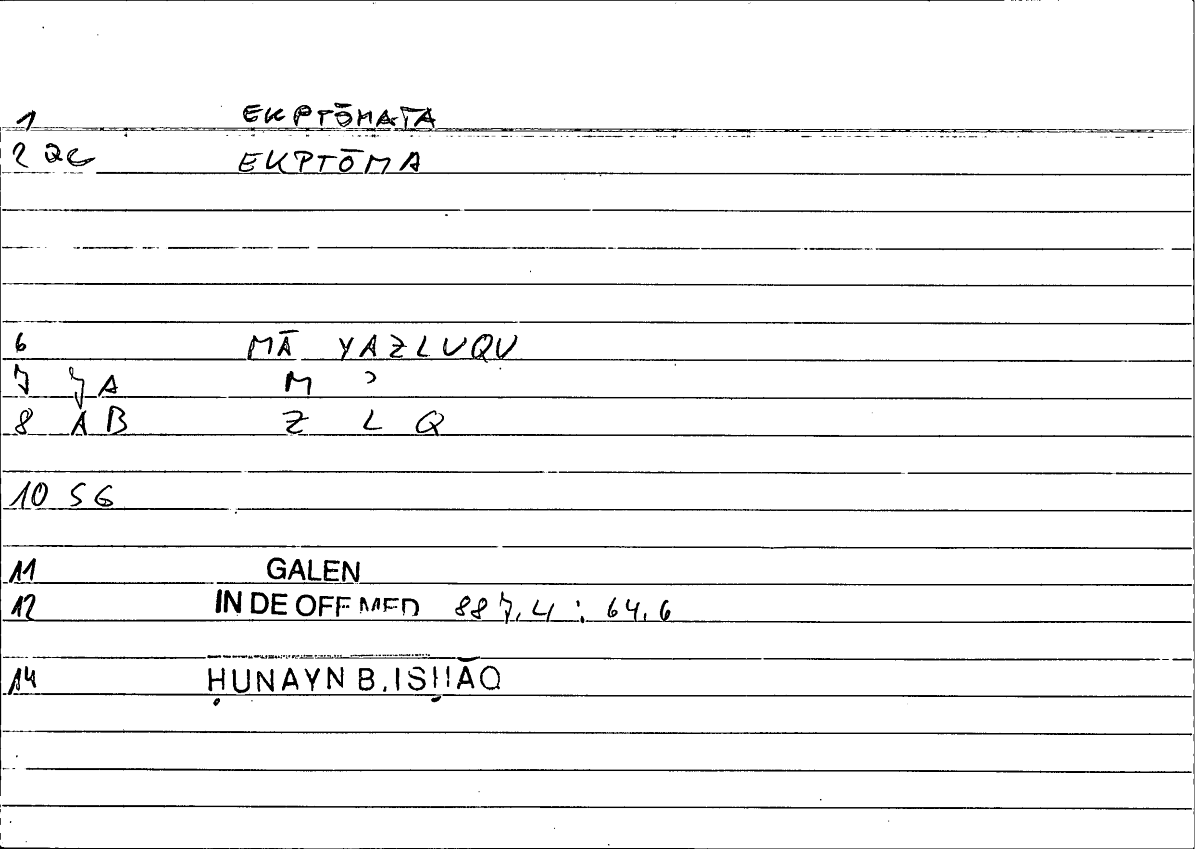 1 EKPTŌMATA
2 QC EKPTŌMA
6 MĀ YAZLUQU
7 7A M ʾ
8 AB Z L Q
10 SG
11 GALEN
12 IN DE OFF MED 887,4 : 64,6
14 ḤUNAYN B. ISḤĀQ